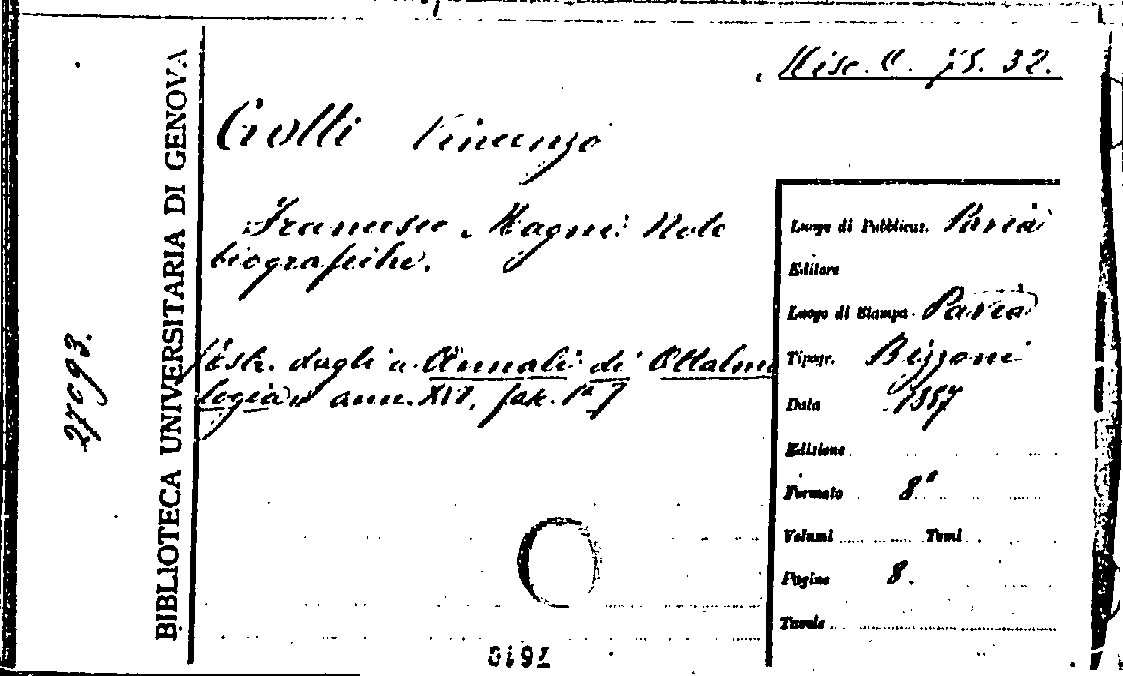 Misc. A. 75. 32.
Grolli Vincenzo
Francesco Magni: Note
biografiche.
[Estr. dagli « Annali di Ottalmo
logia » ann. XIV, fasc. 1º]
BIBLIOTECA UNIVERSITARIA DI GENOVA
Luogo di Pubblicaz. Pavia
Editore
Luogo di Stampa Pavia
Tipogr. Bizzoni
Data 1887
Edizione
Formato 8º
Volumi Tomi
Pagine 8.
Tavole